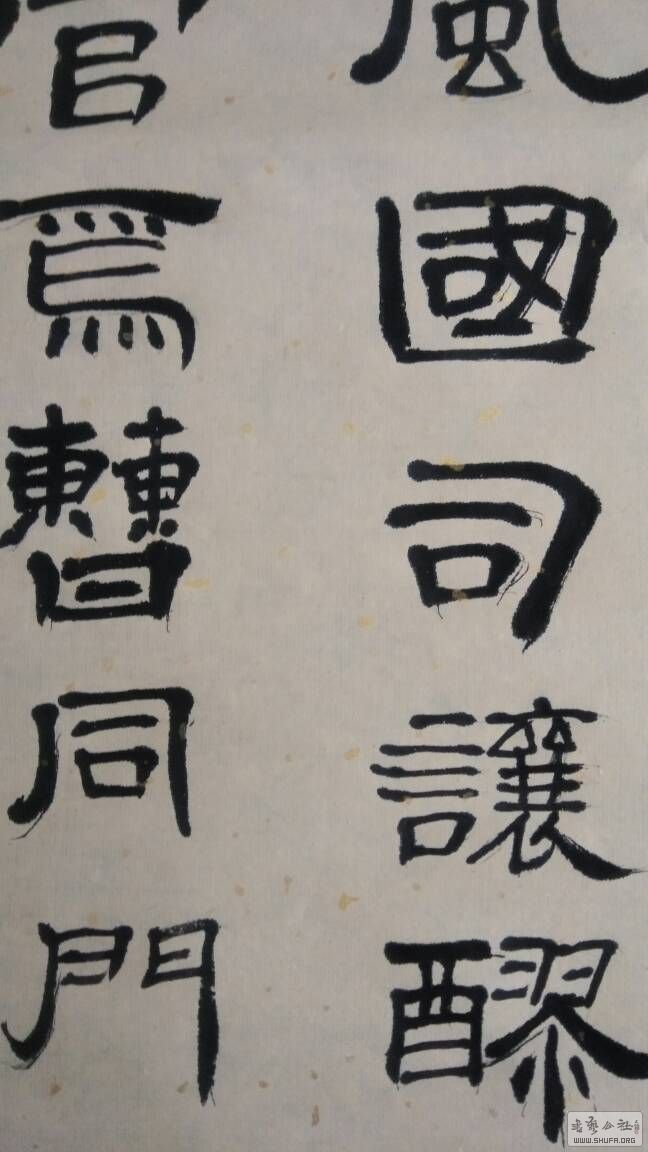 風國司讓醪
官焉曹同門
书艺公社
WWW.SHUFA.ORG